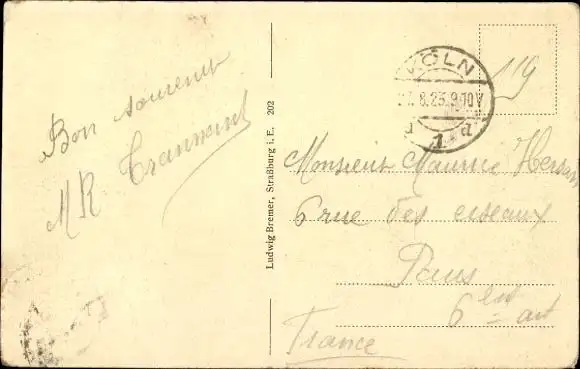 Bon souvenir
MR
Ludwig Bremer, Straßburg i. E. 202
KÖLN
8.23.9-10V
1 d
119
Monsieur Maurice
6 rue des ciseaux
Paris
6
France